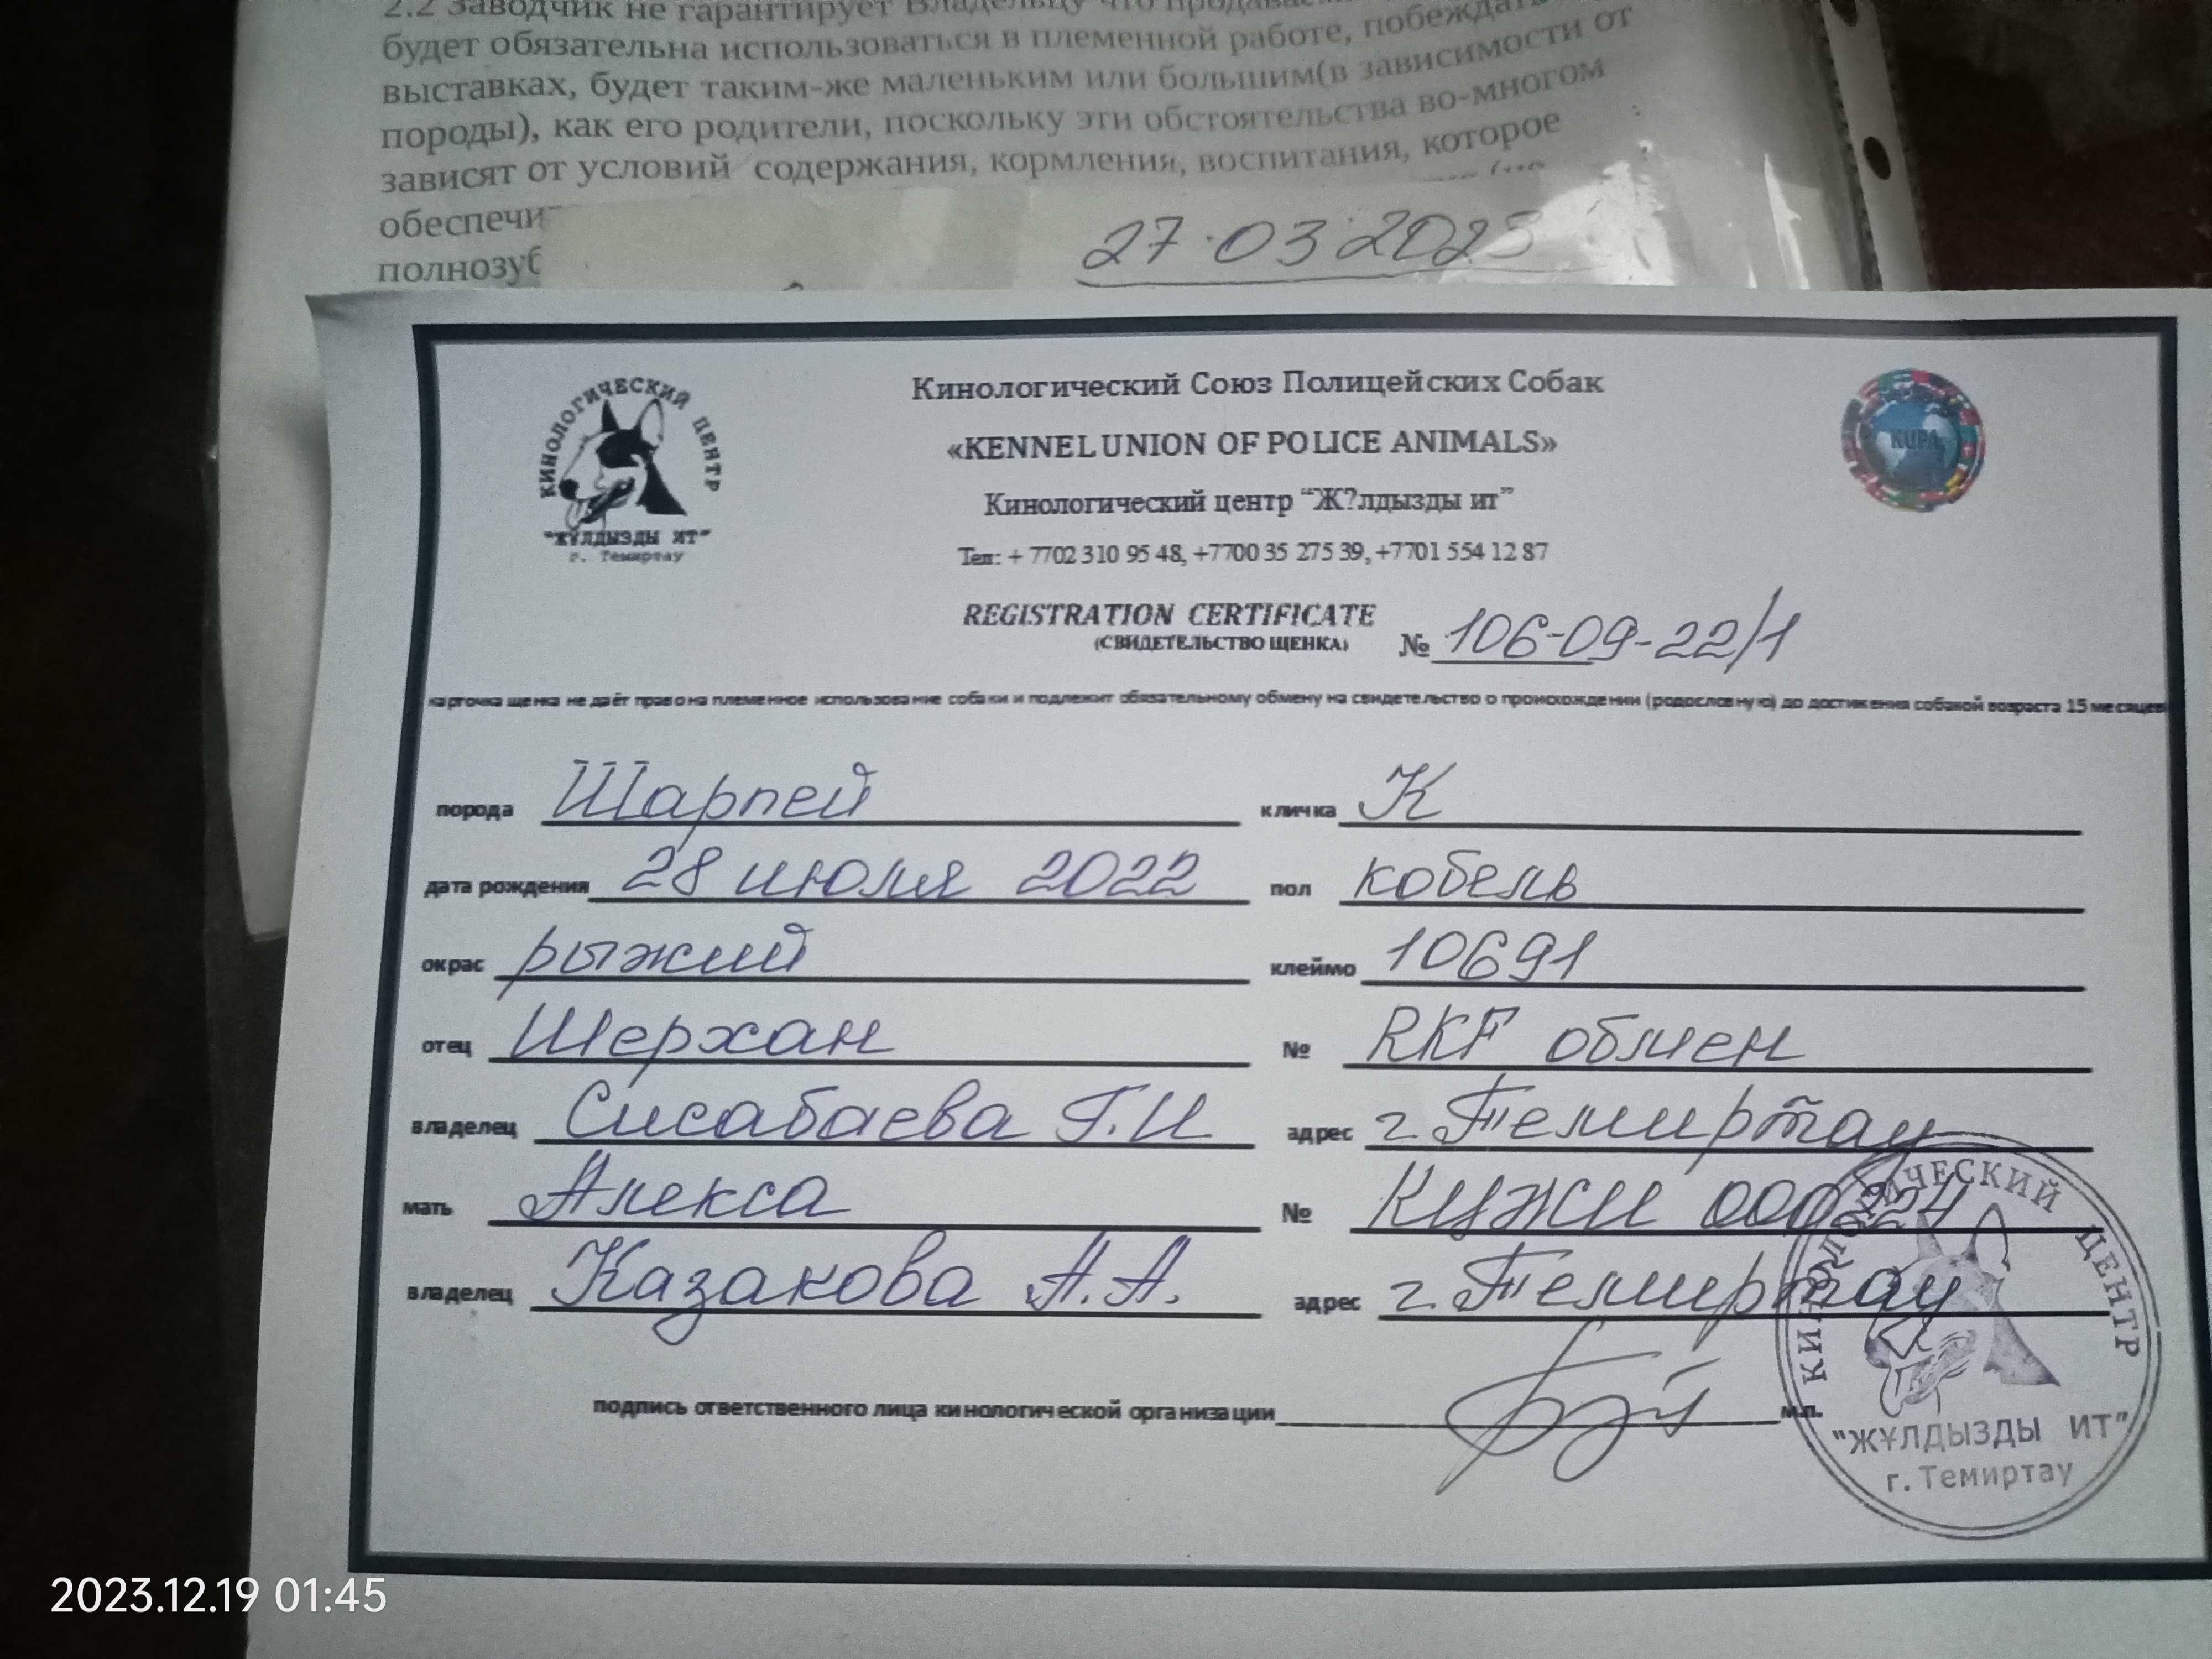 2.2 Заводчик не гарантирует Владельцу что
будет обязательна использоваться в племенной работе, побеждать
выставках, будет таким-же маленьким или большим(в зависимости от
породы), как его родители, поскольку эти обстоятельства во-многом
зависят от условий содержания, кормления, воспитания, которое
27.03.2023
КИНОЛОГИЧЕСКИЙ ЦЕНТР
"ЖҰЛДЫЗДЫ ИТ"
г. Темиртау
Кинологический Союз Полицейских Собак
«KENNEL UNION OF POLICE ANIMALS»
Кинологический центр “Ж?лдызды ит”
Тел: + 7702 310 95 48, +7700 35 275 39, +7701 554 12 87
KUPA
REGISTRATION CERTIFICATE
(СВИДЕТЕЛЬСТВО ЩЕНКА) № 106-09-22/1
карточка щенка не даёт право на племенное использование собаки и подлежит обязательному обмену на свидетельство о происхождении (родословную) до достижения собакой возраста 15 месяцев
порода Шарпей кличка К
дата рождения 28 июля 2022 пол кобель
окрас рыжий клеймо 10691
отец Шерхан № RKF обмен
владелец Сисабаева Г.И адрес г. Темиртау
мать Алекса № КЦЖИ 000224
владелец Казакова А.А. адрес г. Темиртау
подпись ответственного лица кинологической организации м.п.
КИНОЛОГИЧЕСКИЙ ЦЕНТР
"ЖҰЛДЫЗДЫ ИТ"
г. Темиртау
2023.12.19 01:45